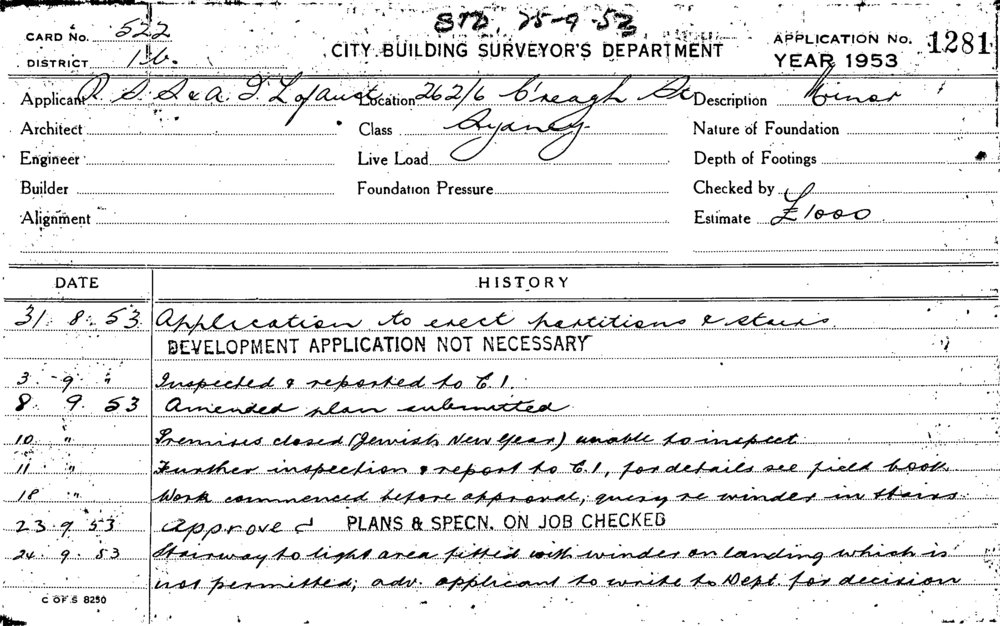 STD. 25-9-53
CARD No. 522
DISTRICT 16.
CITY BUILDING SURVEYOR'S DEPARTMENT
APPLICATION No. 1281
YEAR 1953
Applicant R. S. S. & A. I. L. of Aust. Location 262/6 C'reagh St Description Minor
Architect Class Sydney Nature of Foundation
Engineer Live Load Depth of Footings
Builder Foundation Pressure Checked by
Alignment Estimate £1000
DATE HISTORY
31. 8. 53 Application to erect partitions & stairs
DEVELOPMENT APPLICATION NOT NECESSARY
3. 9. " Inspected & reported to C.I.
8. 9. 53 Amended plan submitted
10 " Premises closed (Jewish New Year) unable to inspect
11 " Further inspection & report to C.I, for details see field book
18 " Work commenced before approval; query re winder in stairs
23. 9. 53 Approved PLANS & SPECN. ON JOB CHECKED
24. 9. 53 Stairway to light area fitted with winder on landing which is
not permitted; adv. applicant to write to Dept. for decision
C OF S 8250